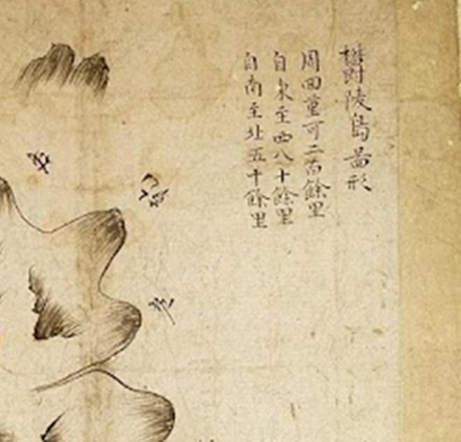 鬱陵島圖形
周回董可二百餘里
自東至西八十餘里
自南至北五十餘里